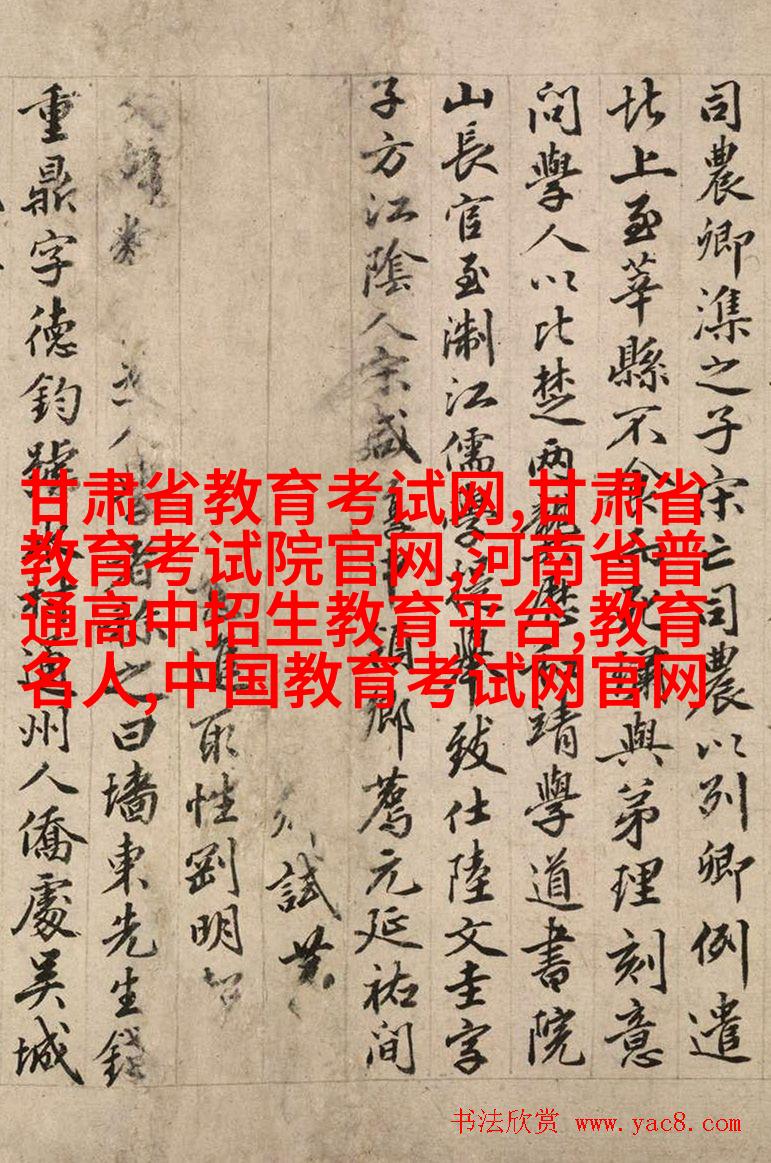 司農卿潗之子宋亡司農以列卿例遣
北上至莘縣不食而死璛與弟理刻意
問學人以比楚兩龔歷和靖學道書院
山長官至淛江儒學提舉致仕陸文圭字
子方江陰人宋咸淳中領鄉薦元延祐間
試
進取性劉明
人之曰墻東先生錢
重鼎字德鈞號水村通州人僑處吳城
甘肃省教育考试网,甘肃省
教育考试院官网,河南省普
通高中招生教育平台,教育
名人,中国教育考试网官网
书法欣赏 www.yac8.com